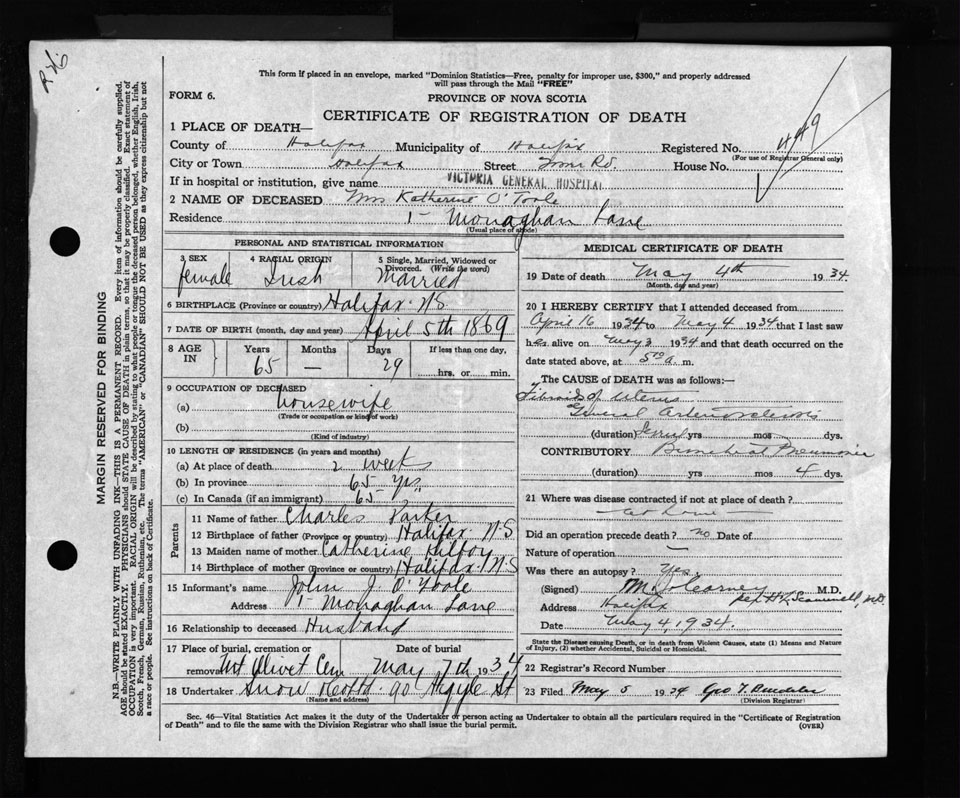 This form if placed in an envelope, marked "Dominion Statistics—Free, penalty for improper use, $300," and properly addressed
will pass through the Mail "FREE"
FORM 6.
PROVINCE OF NOVA SCOTIA
CERTIFICATE OF REGISTRATION OF DEATH
449
1 PLACE OF DEATH—
County of Halifax Municipality of Halifax Registered No.
(For use of Registrar General only)
City or Town Halifax Street Rd. House No.
If in hospital or institution, give name VICTORIA GENERAL HOSPITAL
2 NAME OF DECEASED Mrs Katherine O'Toole
Residence 1 - Monaghan Lane
(Usual place of abode)
PERSONAL AND STATISTICAL INFORMATION
3 SEX 4 RACIAL ORIGIN 5 Single, Married, Widowed or
Divorced. (Write the word)
female Irish Married
6 BIRTHPLACE (Province or country) Halifax N.S
7 DATE OF BIRTH (month, day and year) April 5th 1869
8 AGE IN Years Months Days If less than one day,
65 — 29 hrs. or min.
9 OCCUPATION OF DECEASED
(a) housewife
(Trade or occupation or kind of work)
(b)
(Kind of industry)
10 LENGTH OF RESIDENCE (in years and months)
(a) At place of death 2 weeks
(b) In province 65 yrs
(c) In Canada (if an immigrant) 65
Parents
11 Name of father Charles Parker
12 Birthplace of father (Province or country) Halifax N.S
13 Maiden name of mother Catherine Kilroy
14 Birthplace of mother (Province or country) Halifax N.S
15 Informant's name John J. O'Toole
Address 1 Monaghan Lane
16 Relationship to deceased Husband
17 Place of burial, cremation or Date of burial
removal Mt Olivet Cem May 7th 1934
18 Undertaker Snow 90 Argyle St
(Name and address)
MEDICAL CERTIFICATE OF DEATH
19 Date of death May 4th 1934
(Month, day and year)
20 I HEREBY CERTIFY that I attended deceased from
April 16 1934 to May 4 1934 that I last saw
her alive on May 3 1934 and that death occurred on the
date stated above, at 5 a. m.
The CAUSE of DEATH was as follows:—
Fibroids of Uterus
General Arteriosclerosis
(duration) Several yrs mos dys.
CONTRIBUTORY Bronchial Pneumonia
(duration) mos 4 dys.
21 Where was disease contracted if not at place of death?
Did an operation precede death? no Date of
Nature of operation —
Was there an autopsy? Yes.
(Signed) M.D.
Address Halifax
Date May 4, 1934.
State the Disease causing Death, or in death from Violent Causes, state (1) Means and Nature
of Injury, (2) whether Accidental, Suicidal or Homicidal.
22 Registrar's Record Number
23 Filed May 5 1934 Geo T.
(Division Registrar)
Sec. 46—Vital Statistics Act makes it the duty of the Undertaker or person acting as Undertaker to obtain all the particulars required in the "Certificate of Registration
of Death" and to file the same with the Division Registrar who shall issue the burial permit.
(OVER)
MARGIN RESERVED FOR BINDING
N.B.—WRITE PLAINLY WITH UNFADING INK—THIS IS A PERMANENT RECORD. Every item of information should be carefully supplied.
AGE should be stated EXACTLY. PHYSICIANS should STATE CAUSE OF DEATH in plain terms, so that it may be properly classified. Exact statement of
OCCUPATION is very important. RACIAL ORIGIN will be described by stating to what people or tongue the deceased person belonged, whether English, Irish,
Scotch, French, German, Russian, Ruthenian, etc. The terms "AMERICAN" or "CANADIAN" SHOULD NOT BE USED as they express citizenship but not
a race or people. See instructions on back of Certificate.